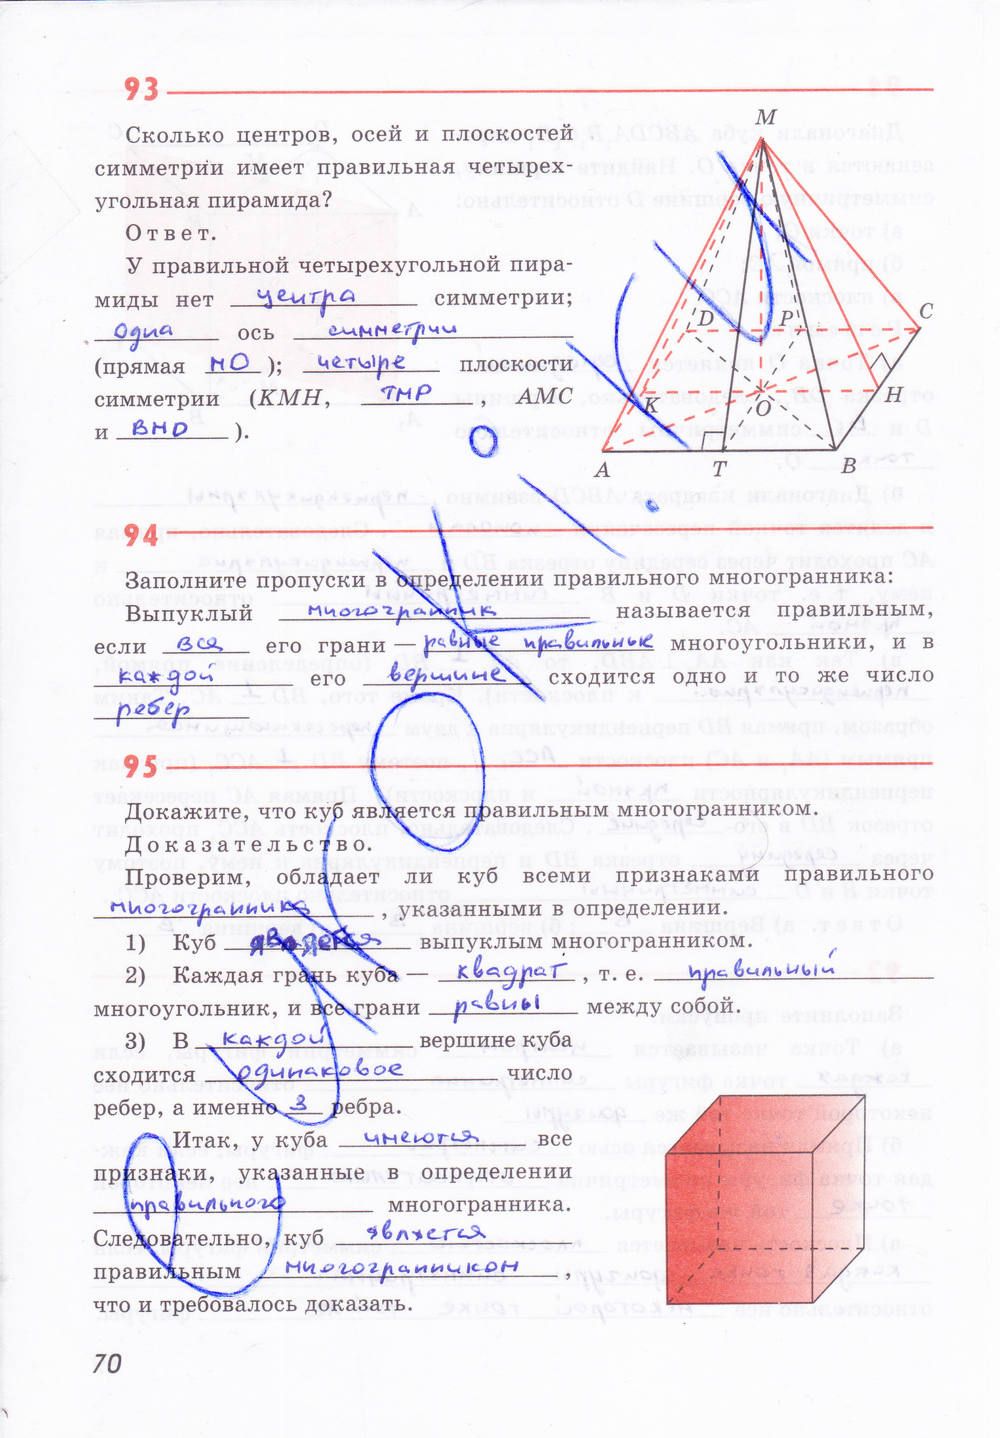 93
Сколько центров, осей и плоскостей
симметрии имеет правильная четырех-
угольная пирамида?
Ответ.
У правильной четырехугольной пира-
миды нет центра симметрии;
одна ось симметрии
(прямая МО); четыре плоскости
симметрии (KMH, ТМР, AMC
и BMD).
M
D
P
C
K
O
H
A
T
B
94
Заполните пропуски в определении правильного многогранника:
Выпуклый многогранник называется правильным,
если все его грани — равные правильные многоугольники, и в
каждой его вершине сходится одно и то же число
ребер
95
Докажите, что куб является правильным многогранником.
Доказательство.
Проверим, обладает ли куб всеми признаками правильного
многогранника, указанными в определении.
1) Куб является выпуклым многогранником.
2) Каждая грань куба — квадрат, т. е. правильный
многоугольник, и все грани равны между собой.
3) В каждой вершине куба
сходится одинаковое число
ребер, а именно 3 ребра.
Итак, у куба имеются все
признаки, указанные в определении
правильного многогранника.
Следовательно, куб является
правильным многогранником,
что и требовалось доказать.
70